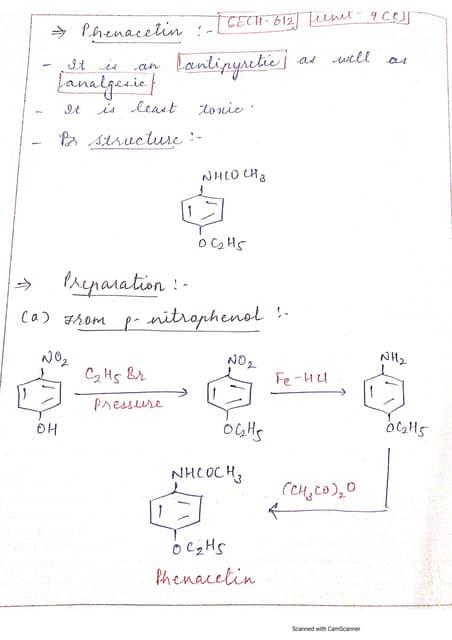 ⇒ Phenacetin :- GECH-612 Unit-4(c)
- It is an antipyretic as well as
analgesic
- It is least toxic.
- Its structure :-
NHCOCH3
OC2H5
⇒ Preparation :-
(a) From p-nitrophenol :-
NO2 NO2 NH2
C2H5Br Fe-HCl
Pressure
OH OC2H5 OC2H5
NHCOCH3
(CH3CO)2O
OC2H5
Phenacetin
Scanned with CamScanner